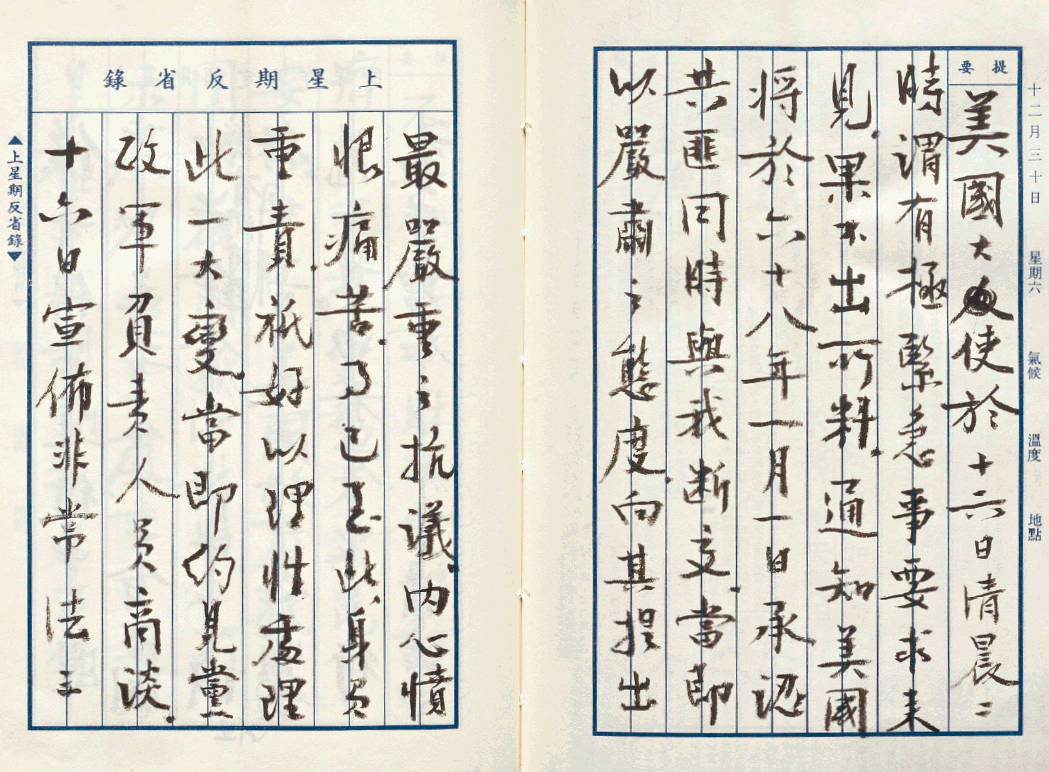 十二月三十日 星期六 氣候 溫度 地點
提要
美國大使於十六日清晨二
時謂有極緊急事要求来
見，果不出所料，通知美國
將於六十八年一月一日承認
共匪同時與我断交，當即
以嚴肅之態度，向其提出
上星期反省錄
最嚴重之抗議，内心憤
恨痛苦，事已至此，身負
重責，祇好以理性處理
此一大變，當即約見黨
政軍負責人員商談，
十六日宣佈非常法三
▲上星期反省錄▼